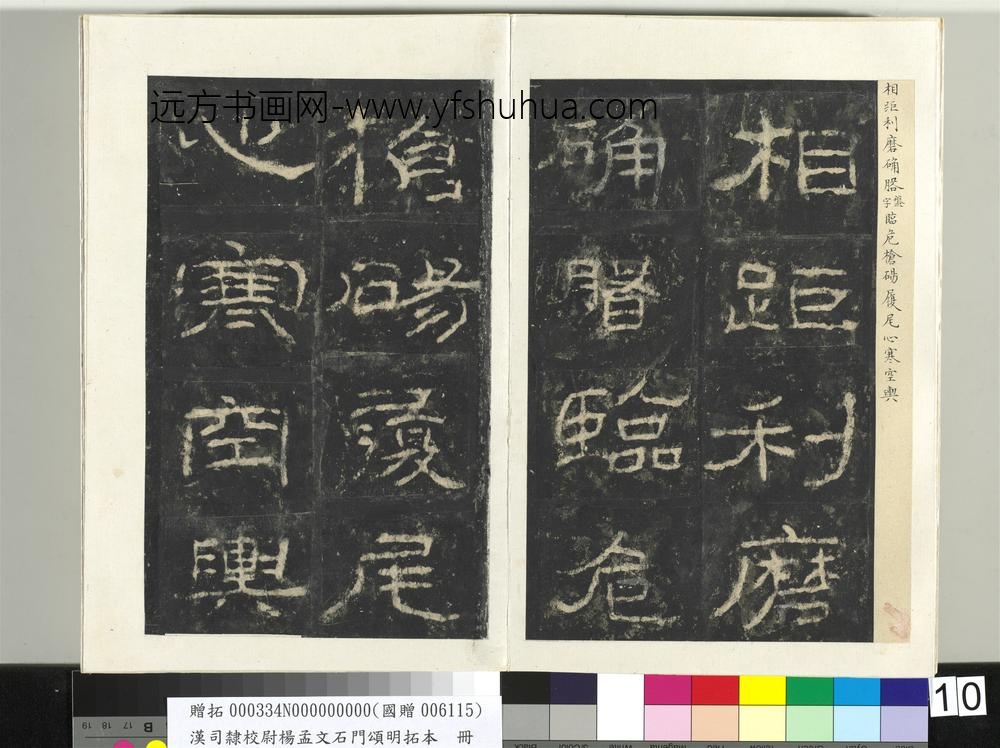 远方书画网-www.yfshuhua.com
相距利磨确䂮臨危槍碭履尾心寒空輿
相距利磨
确
臨危
槍碭履尾
心寒空輿
10
贈拓 000334N000000000(國贈 006115)
漢司隸校尉楊孟文石門頌明拓本 冊
19 18 17 B